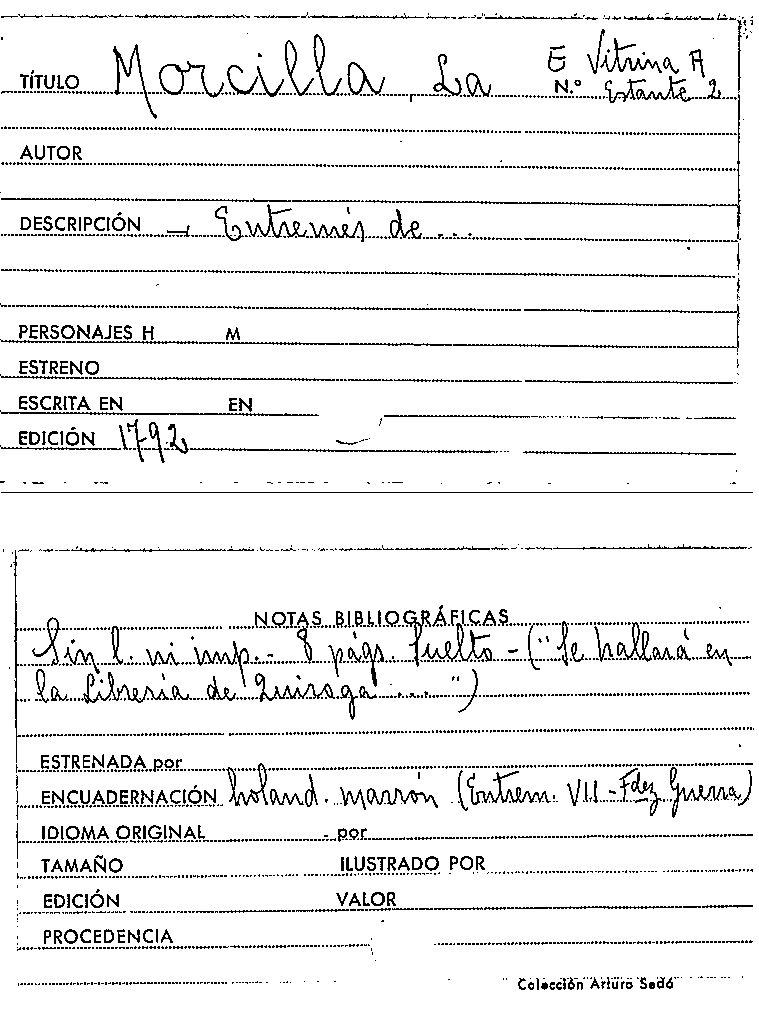 TÍTULO Morcilla, La E Vitrina A
N.º Estante 2
AUTOR
DESCRIPCIÓN → Entremés de ...
PERSONAJES H M
ESTRENO
ESCRITA EN EN
EDICIÓN 1792
NOTAS BIBLIOGRÁFICAS
Sin l. ni imp.- 8 págs. Suelto - ("Se hallará en
la Librería de Quiroga ....")
ESTRENADA por
ENCUADERNACIÓN holand. marrón (Entrem. VII - Fdez Guerra)
IDIOMA ORIGINAL - por
TAMAÑO ILUSTRADO POR
EDICIÓN VALOR
PROCEDENCIA
Colección Arturo Sedó